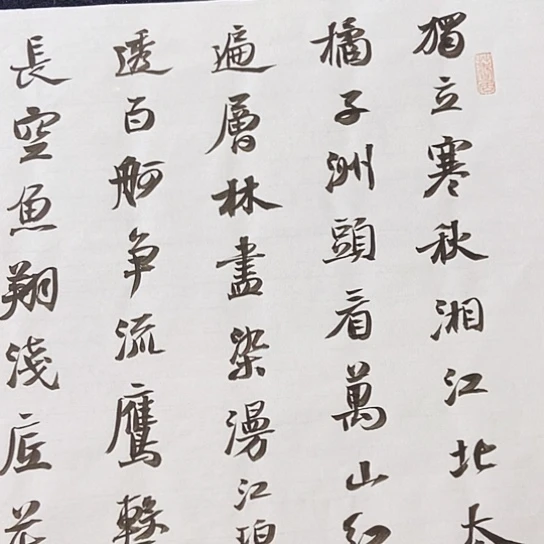 獨立寒秋湘江北去
橘子洲頭看萬山紅
遍層林盡染漫江碧
透百舸争流鷹擊
長空魚翔淺底